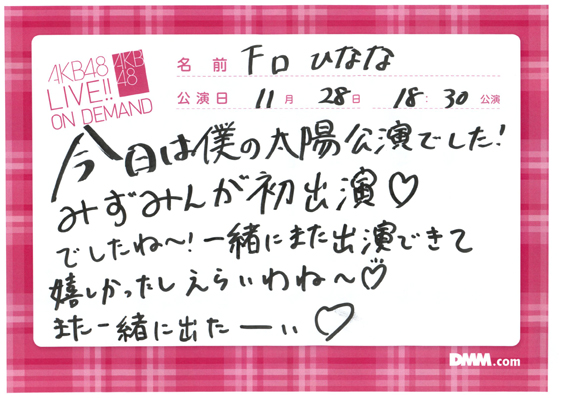 AKB48
LIVE!!
ON DEMAND
AKB
48
名前 下口ひなな
公演日 11月 28日 18:30 公演
今日は僕の太陽公演でした!
みずみんが初出演♡
でしたね〜!一緒にまた出演できて
嬉しかったしえらいわね〜♡
また一緒に出たーぃ♡
DMM.com